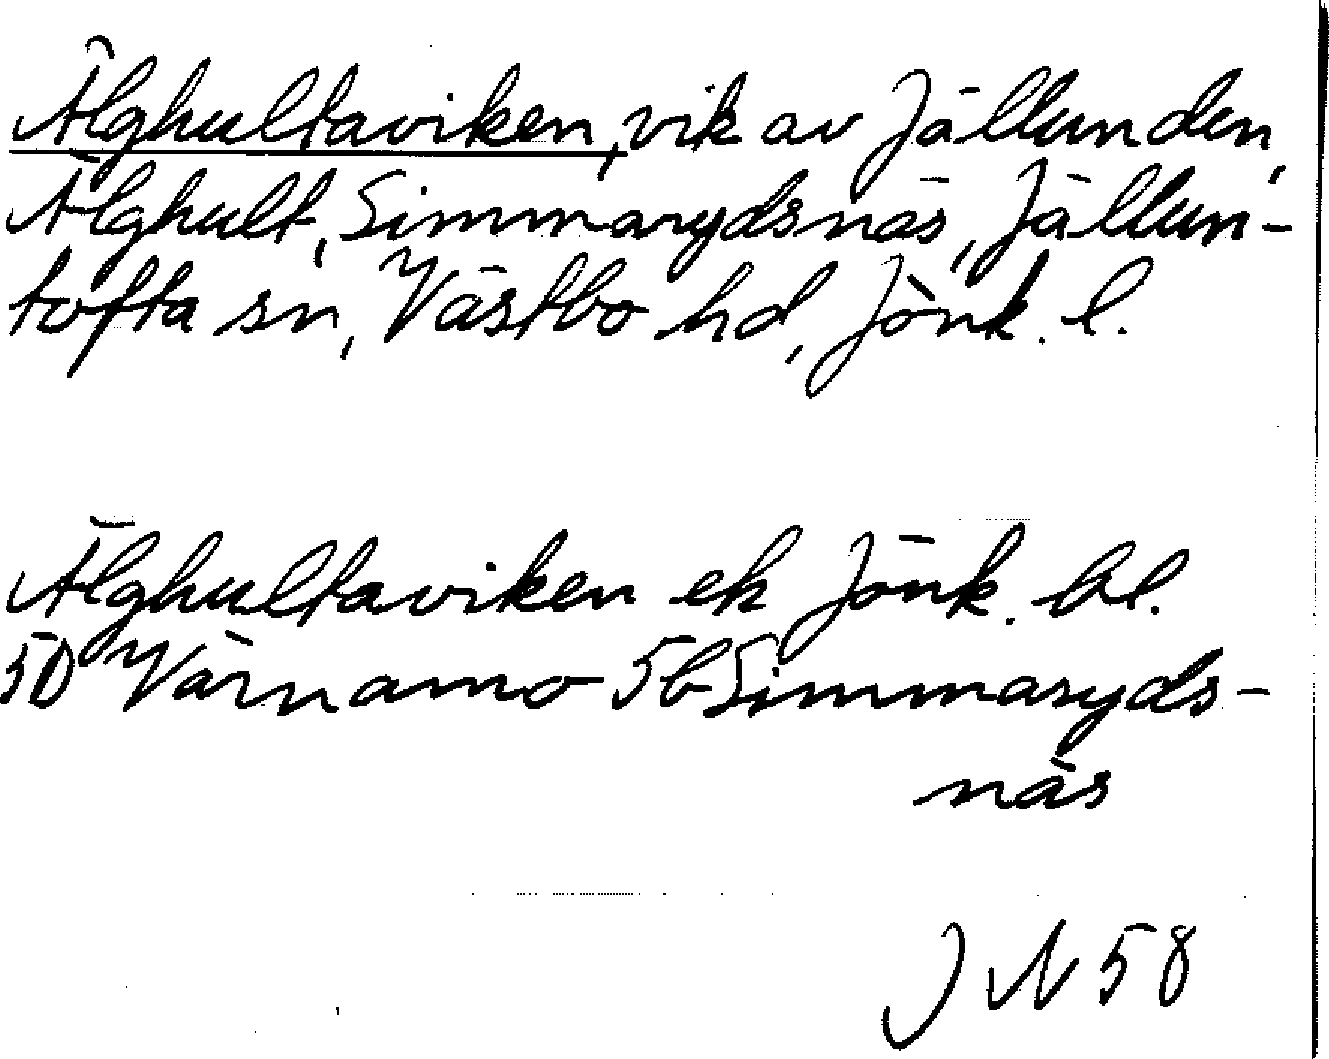 Älghultaviken, vik av Jällunden,
Älghult, Simmarydsnäs, Jällun-
tofta sn, Västbo hd, Jönk. l.
Älghultaviken ek Jönk. bl.
5D Värnamo 5b Simmaryds-
näs
J N 58